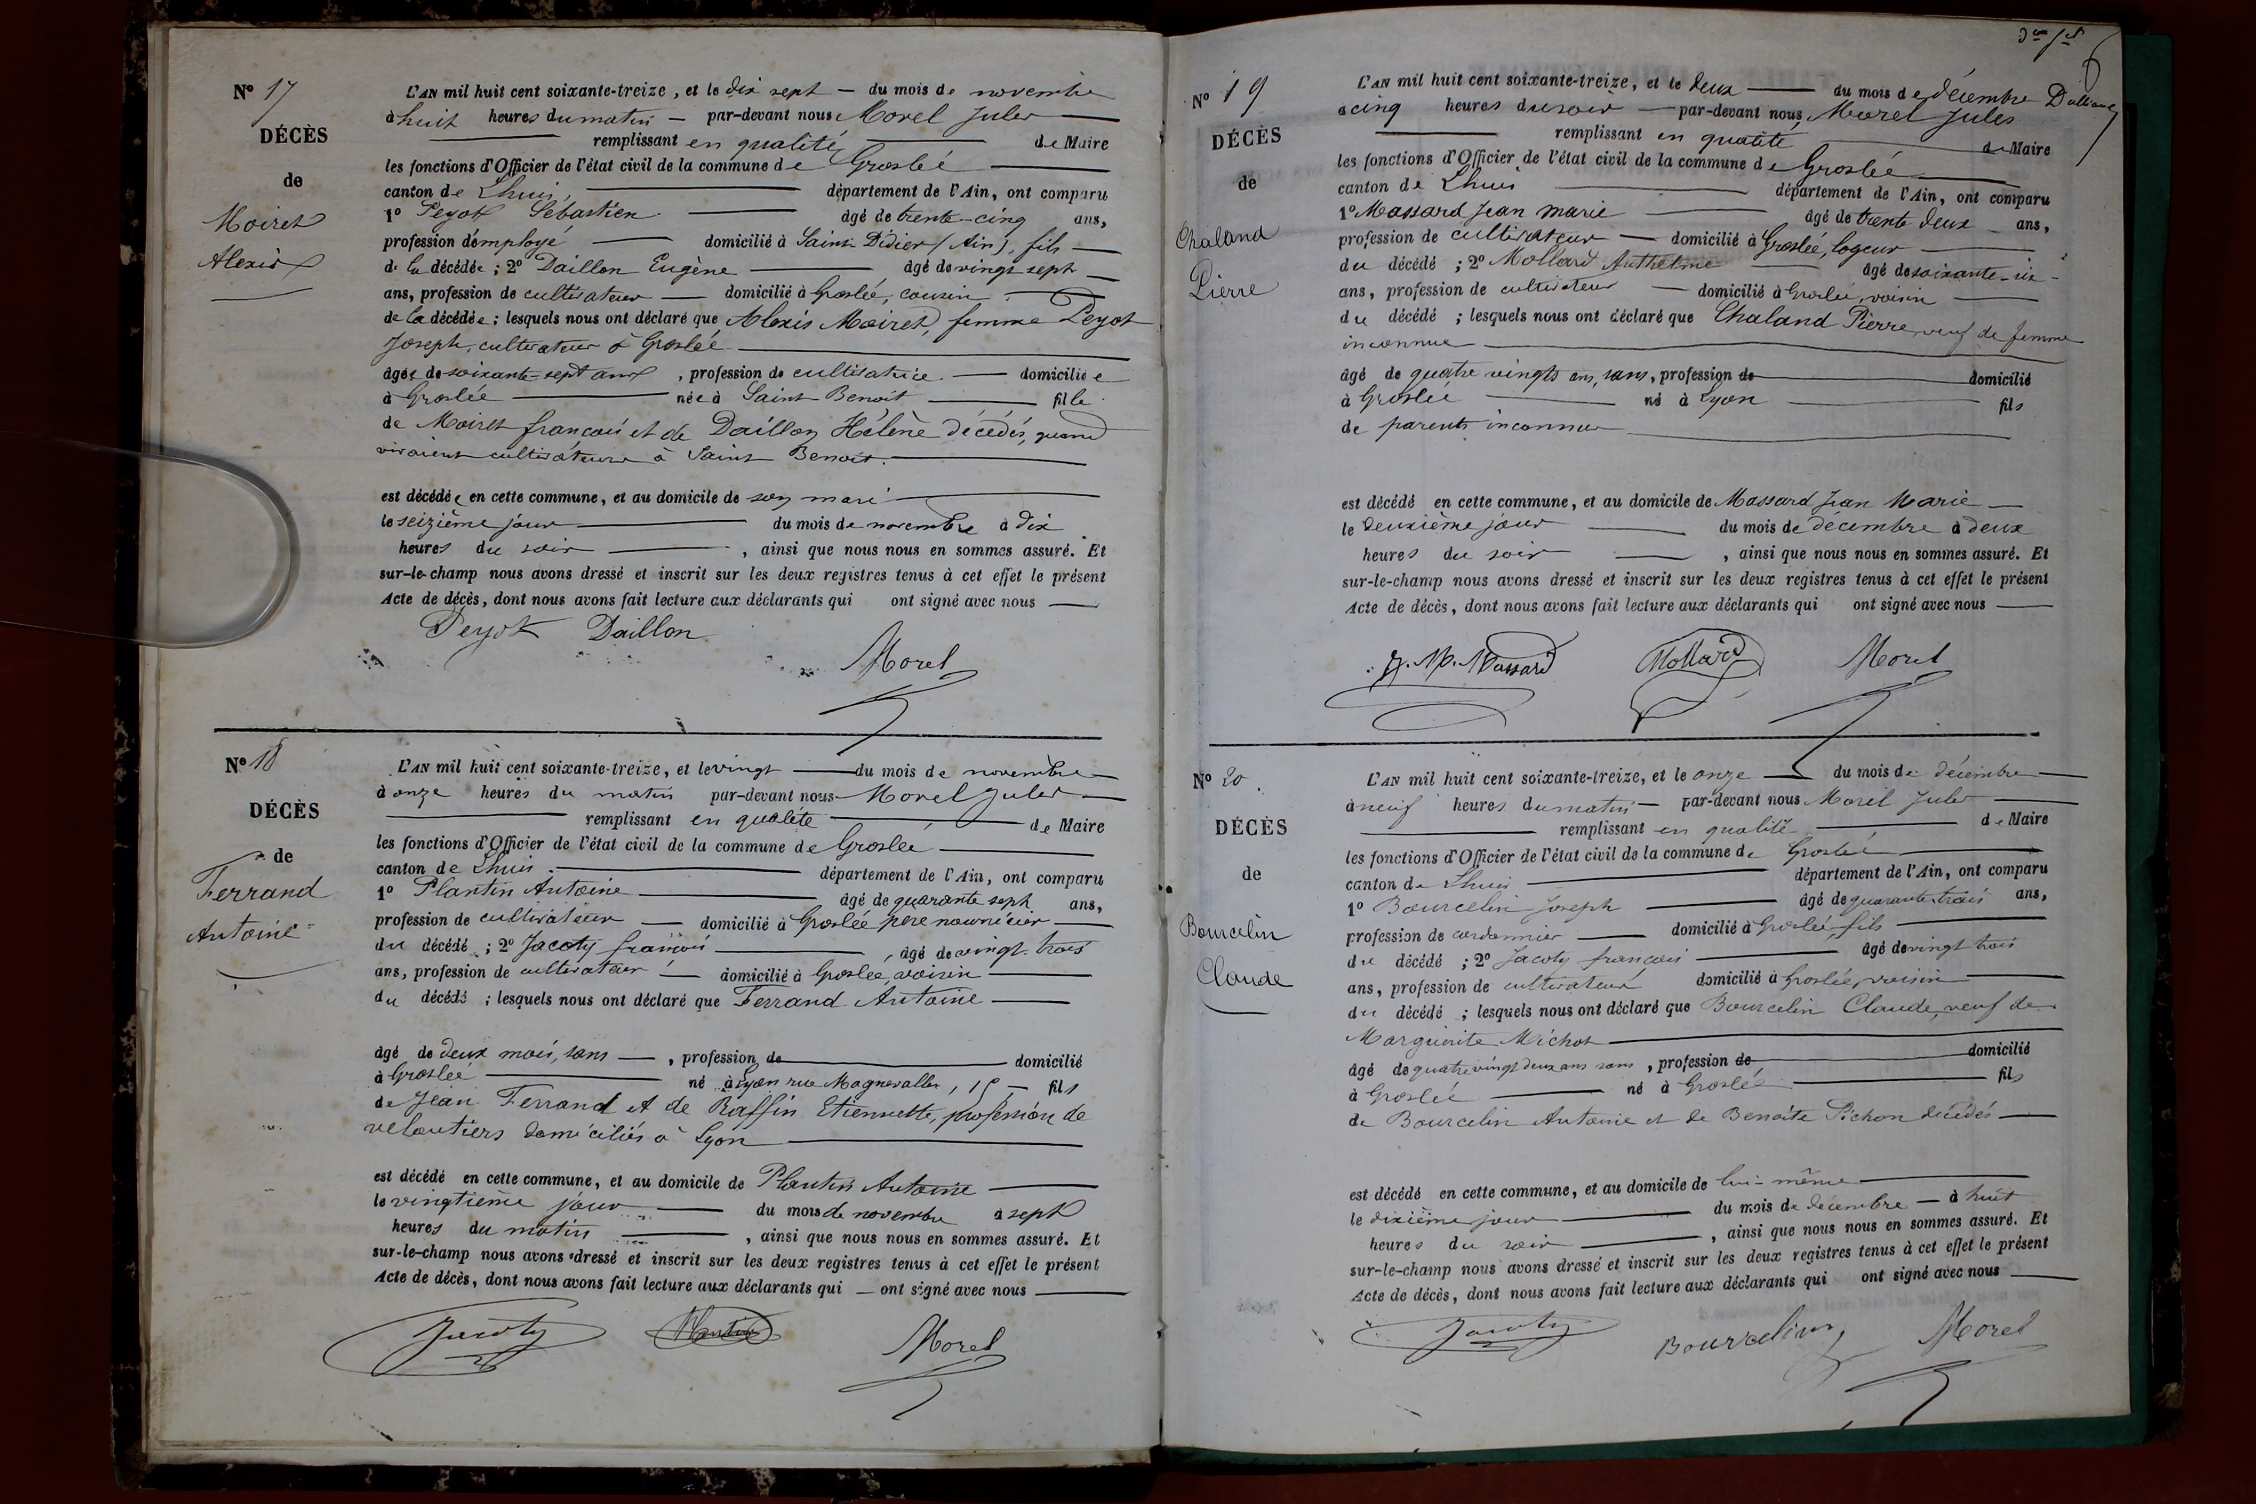 Nº 17
DÉCÈS
de
Moiret
Alexis
L'AN mil huit cent soixante-treize, et le dix sept — du mois de novembre
à huit heures du matin — par-devant nous Morel Jules
remplissant en qualité de Maire
les fonctions d'Officier de l'état civil de la commune de Groslée
canton de Lhuis département de l'Ain, ont comparu
1º Peyot Sébastien âgé de trente-cinq ans,
profession d'employé domicilié à Saint Didier (Ain), fils
de la décédée ; 2º Daillon Eugène âgé de vingt sept
ans, profession de cultivateur domicilié à Groslée, cousin
de la décédée ; lesquels nous ont déclaré que Alexis Moiret, femme Peyot
Joseph, cultivateur à Groslée
âgée de soixante-sept ans, profession de cultivatrice domiciliée
à Groslée née à Saint Benoit fille
de Moiret françois et de Daillon Hélène décédés, quand
vivaient cultivateurs à Saint Benoit.
est décédée en cette commune, et au domicile de son mari
le seizième jour du mois de novembre à dix
heures du soir , ainsi que nous nous en sommes assuré. Et
sur-le-champ nous avons dressé et inscrit sur les deux registres tenus à cet effet le présent
Acte de décès, dont nous avons fait lecture aux déclarants qui ont signé avec nous
Peyot Daillon
Morel
Nº 18
DÉCÈS
de
Ferrand
Antoine
L'AN mil huit cent soixante-treize, et le vingt du mois de novembre
à onze heures du matin par-devant nous Morel Jules
remplissant en qualité de Maire
les fonctions d'Officier de l'état civil de la commune de Groslée
canton de Lhuis département de l'Ain, ont comparu
1º Plantin Antoine âgé de quarante sept ans,
profession de cultivateur domicilié à Groslée père nourricier
du décédé ; 2º Jacoty françois âgé de vingt-trois
ans, profession de cultivateur domicilié à Groslée, voisin
du décédé ; lesquels nous ont déclaré que Ferrand Antoine
âgé de deux mois, sans , profession de domicilié
à Groslée né à Lyon rue Magnevalles, 15 fils
de Jean Ferrand et de Raffin Etiennette, profession de
veloutiers domiciliés à Lyon
est décédé en cette commune, et au domicile de Plantin Antoine
le vingtième jour du mois de novembre à sept
heures du matin , ainsi que nous nous en sommes assuré. Et
sur-le-champ nous avons dressé et inscrit sur les deux registres tenus à cet effet le présent
Acte de décès, dont nous avons fait lecture aux déclarants qui — ont signé avec nous
Jacoty Plantin
Morel
Nº 19
DÉCÈS
de
Chaland
Pierre
L'AN mil huit cent soixante-treize, et le deux du mois de décembre
à cinq heures du soir par-devant nous Morel Jules
remplissant en qualité de Maire
les fonctions d'Officier de l'état civil de la commune de Groslée
canton de Lhuis département de l'Ain, ont comparu
1º Massard Jean marie âgé de trente deux ans,
profession de cultivateur — domicilié à Groslée, logeur
du décédé ; 2º Mollard Anthelme âgé de soixante-six
ans, profession de cultivateur — domicilié à Groslée, voisin
du décédé ; lesquels nous ont déclaré que Chaland Pierre, veuf de femme
inconnue
âgé de quatre vingts ans, sans, profession de domicilié
à Groslée né à Lyon fils
de parents inconnus
est décédé en cette commune, et au domicile de Massard Jean Marie
le deuxième jour du mois de décembre à deux
heures du soir , ainsi que nous nous en sommes assuré. Et
sur-le-champ nous avons dressé et inscrit sur les deux registres tenus à cet effet le présent
Acte de décès, dont nous avons fait lecture aux déclarants qui ont signé avec nous
J. M. Massard Mollard Morel
Nº 20
DÉCÈS
de
Bourcelin
Claude
L'AN mil huit cent soixante-treize, et le onze du mois de décembre
à neuf heures du matin — par-devant nous Morel Jules
remplissant en qualité de Maire
les fonctions d'Officier de l'état civil de la commune de Groslée
canton de Lhuis département de l'Ain, ont comparu
1º Bourcelin Joseph âgé de quarante trois ans,
profession de cordonnier domicilié à Groslée, fils
du décédé ; 2º Jacoty françois âgé de vingt trois
ans, profession de cultivateur domicilié à Groslée, voisin
du décédé ; lesquels nous ont déclaré que Bourcelin Claude, veuf de
Marguerite Michot
âgé de quatre vingt deux ans sans, profession de domicilié
à Groslée né à Groslée fils
de Bourcelin Antoine et de Benoite Pichon décédés
est décédé en cette commune, et au domicile de lui-même
le dixième jour du mois de décembre — à huit
heures du soir , ainsi que nous nous en sommes assuré. Et
sur-le-champ nous avons dressé et inscrit sur les deux registres tenus à cet effet le présent
Acte de décès, dont nous avons fait lecture aux déclarants qui ont signé avec nous
Jacoty Bourcelin Morel